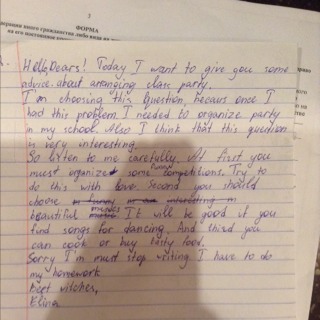 ФОРМА
Hello Dears! Today I want to give you some
advice about arranging class party.
I'm choosing this question, becaus once I
had this problem. I needed to organize party
in my school. Also I think that this question
is very interesting.
So listen to me carefully. At first you
must organize some funny competitions. Try to
do this with love. Second you should
choose
beautiful music It will be good if you
find songs for dancing. And third you
can cook or buy tasty food.
Sorry I'm must stop writing I have to do
my homework
Best witches,
Elina